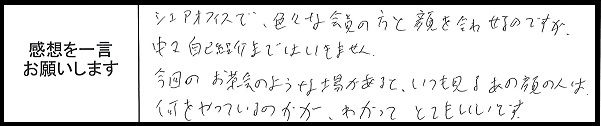 感想を一言
お願いします
シェアオフィスで、色々な会員の方と顔を合わせるのですが、
中々自己紹介まではいきません。
今回のお茶会のような場があると、いつも見るあの顔の人は
何をやっているのかが、わかって とてもいいです。